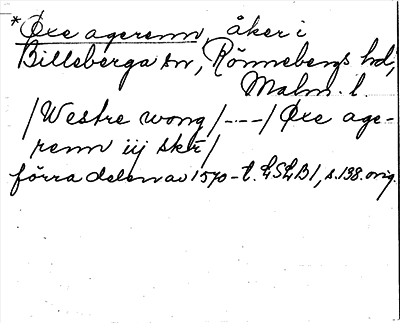 *Øxe agerenn, åker i
Billeberga sn, Rönnebergs hd,
Malm. l.
/Westre wong/---/Øxe age-
renn iij skr/
förra delen av 1570-t. LSLB1, s.198. orig.